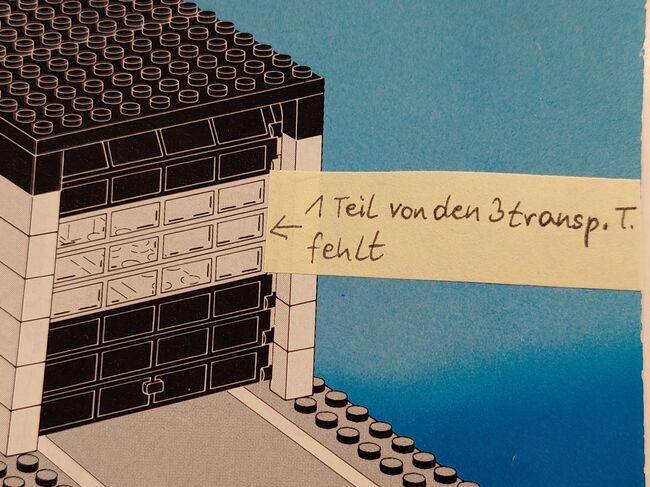 ← 1 Teil von den 3 transp. T.
fehlt